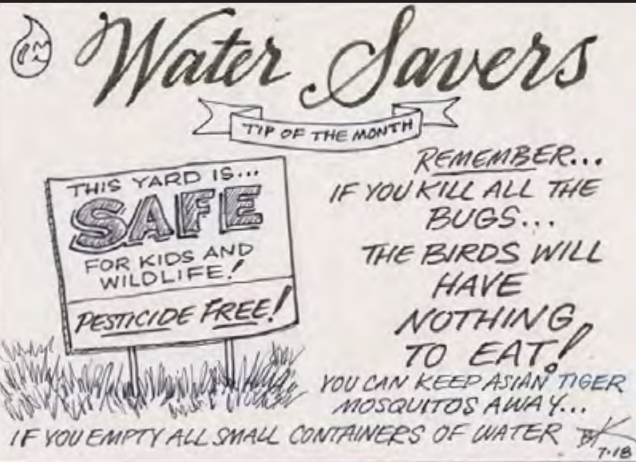 Water Savers
TIP OF THE MONTH
THIS YARD IS...
SAFE
FOR KIDS AND
WILDLIFE!
PESTICIDE FREE!
REMEMBER...
IF YOU KILL ALL THE
BUGS...
THE BIRDS WILL
HAVE
NOTHING
TO EAT!
YOU CAN KEEP ASIAN TIGER
MOSQUITOS AWAY...
IF YOU EMPTY ALL SMALL CONTAINERS OF WATER
7.18